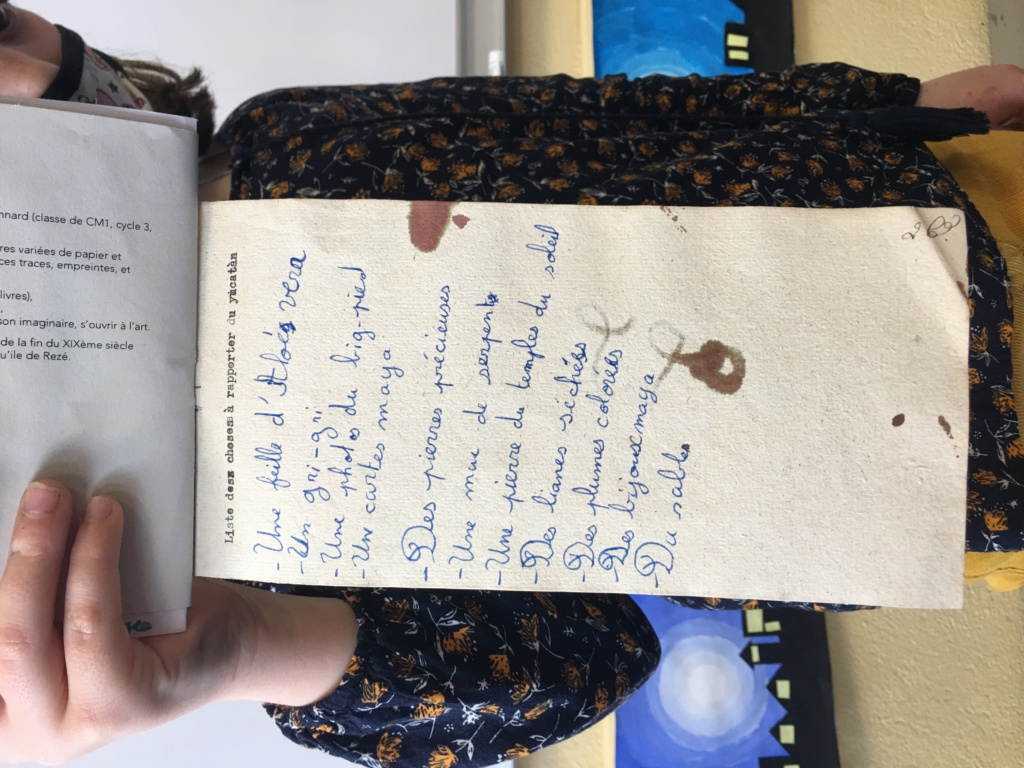 nnard (classe de CM1, cycle 3,
res variées de papier et
ces traces, empreintes, et
livres),
son imaginaire, s'ouvrir à l'art.
de la fin du XIXème siècle
u'île de Rezé.
Liste des choses à rapporter du yucatàn
- Une feille d'Aloés vera
- Un gri-gri
- Une photos du big-pied
- Une cartes maya
- Des pierres précieuses
- Une mue de serpents
- Une pierre du temples du soleil
- Des lianes séchées
- Des plumes colorées
- Des bijoux maya
- Du sables